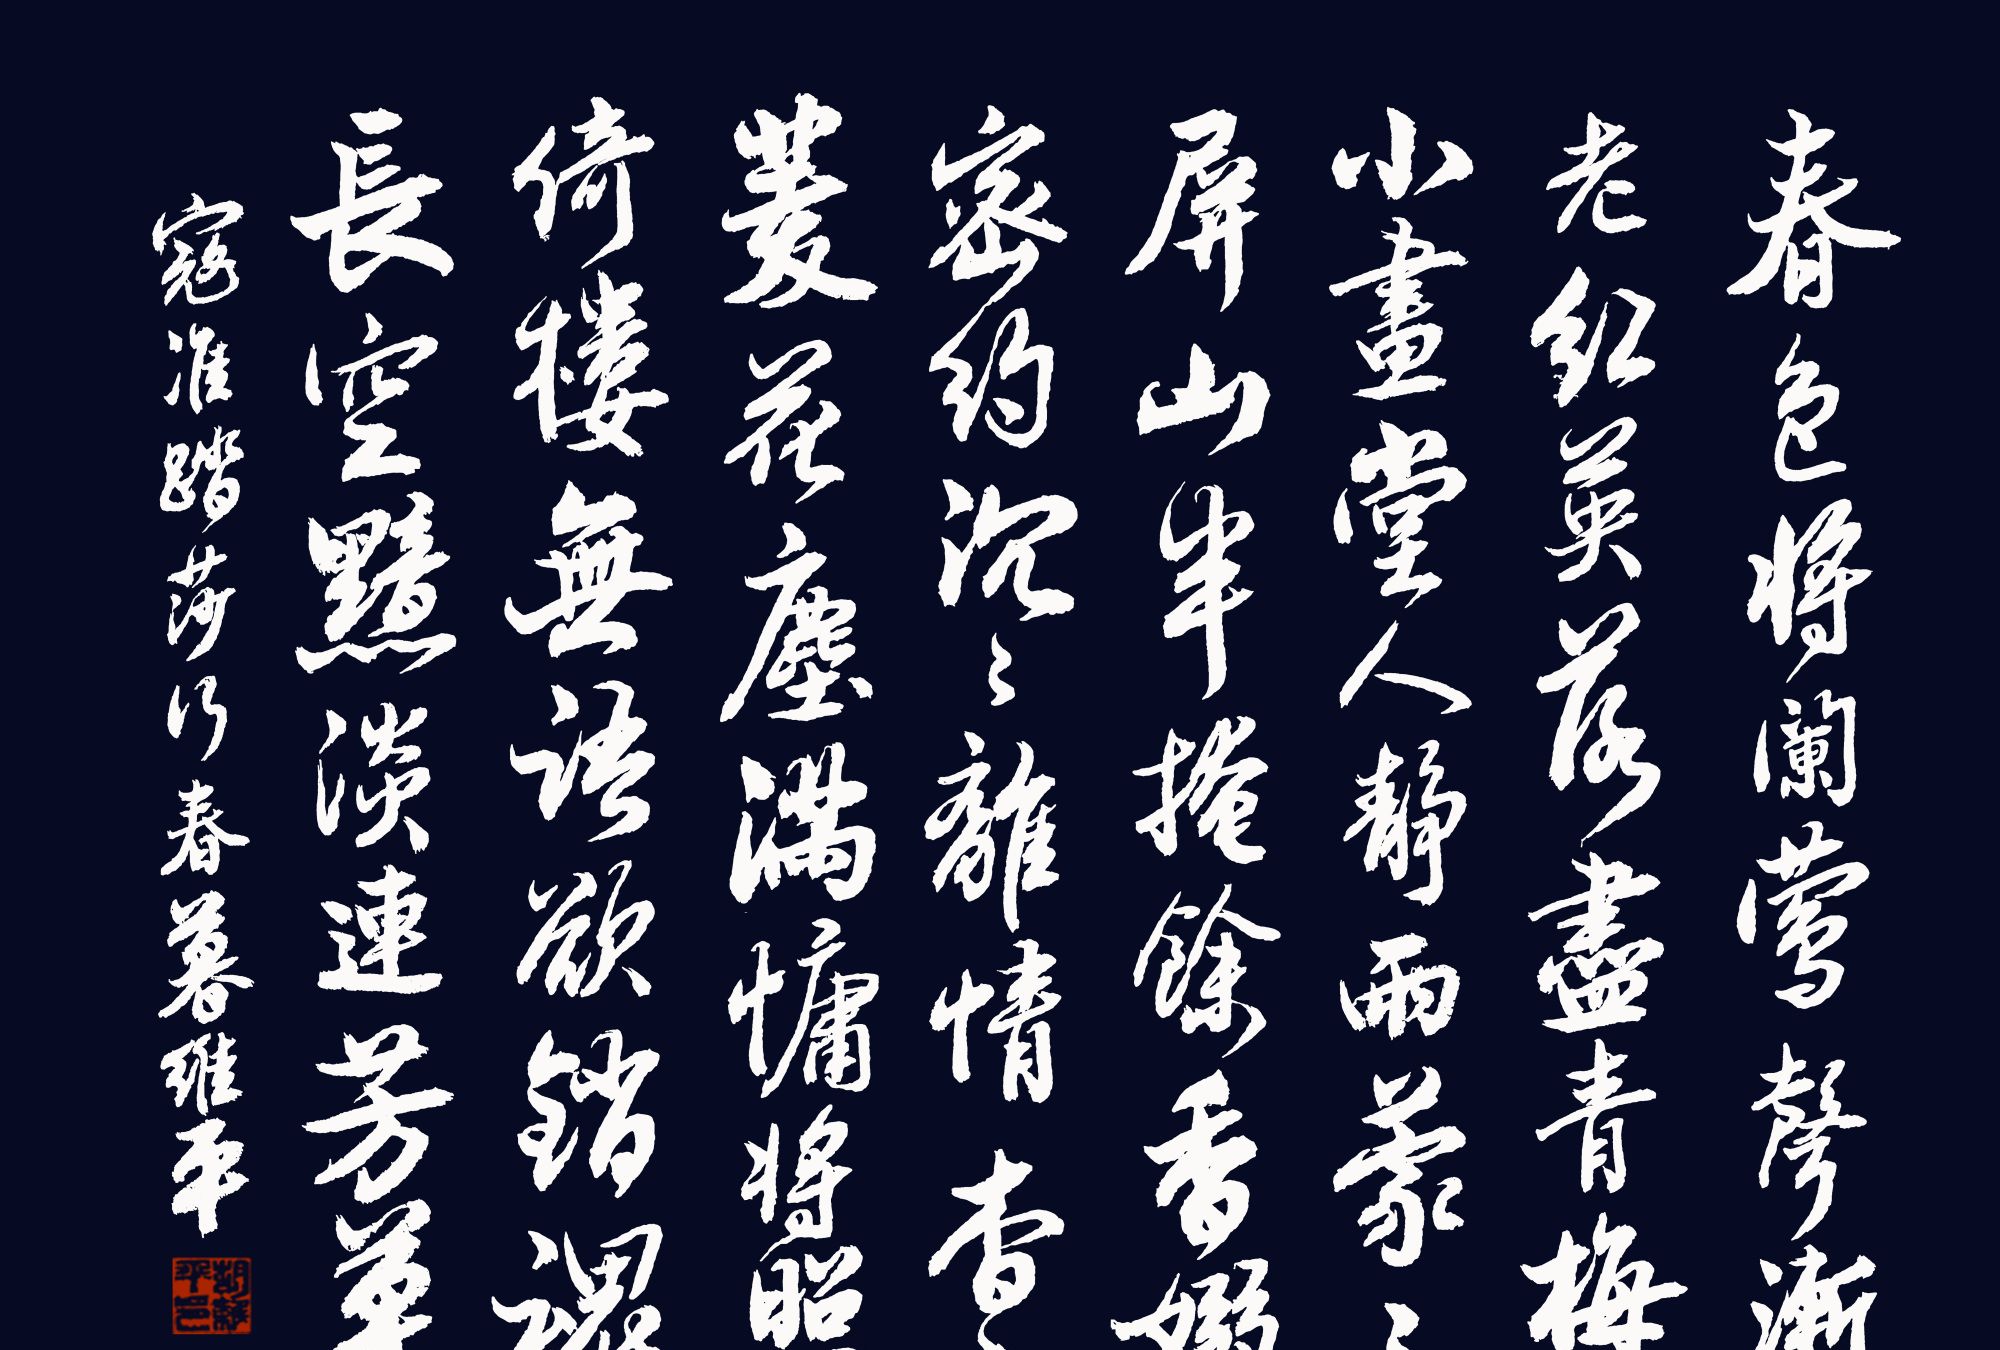 春色将闌莺聲漸
老紅英落盡青梅
小畫堂人靜雨蒙〻
屏山半掩餘香嫋
密約沉〻離情杳〻
菱花塵满慵将照
倚楼無語欲銷魂
長空黯淡連芳草
寇准踏莎行春暮维平